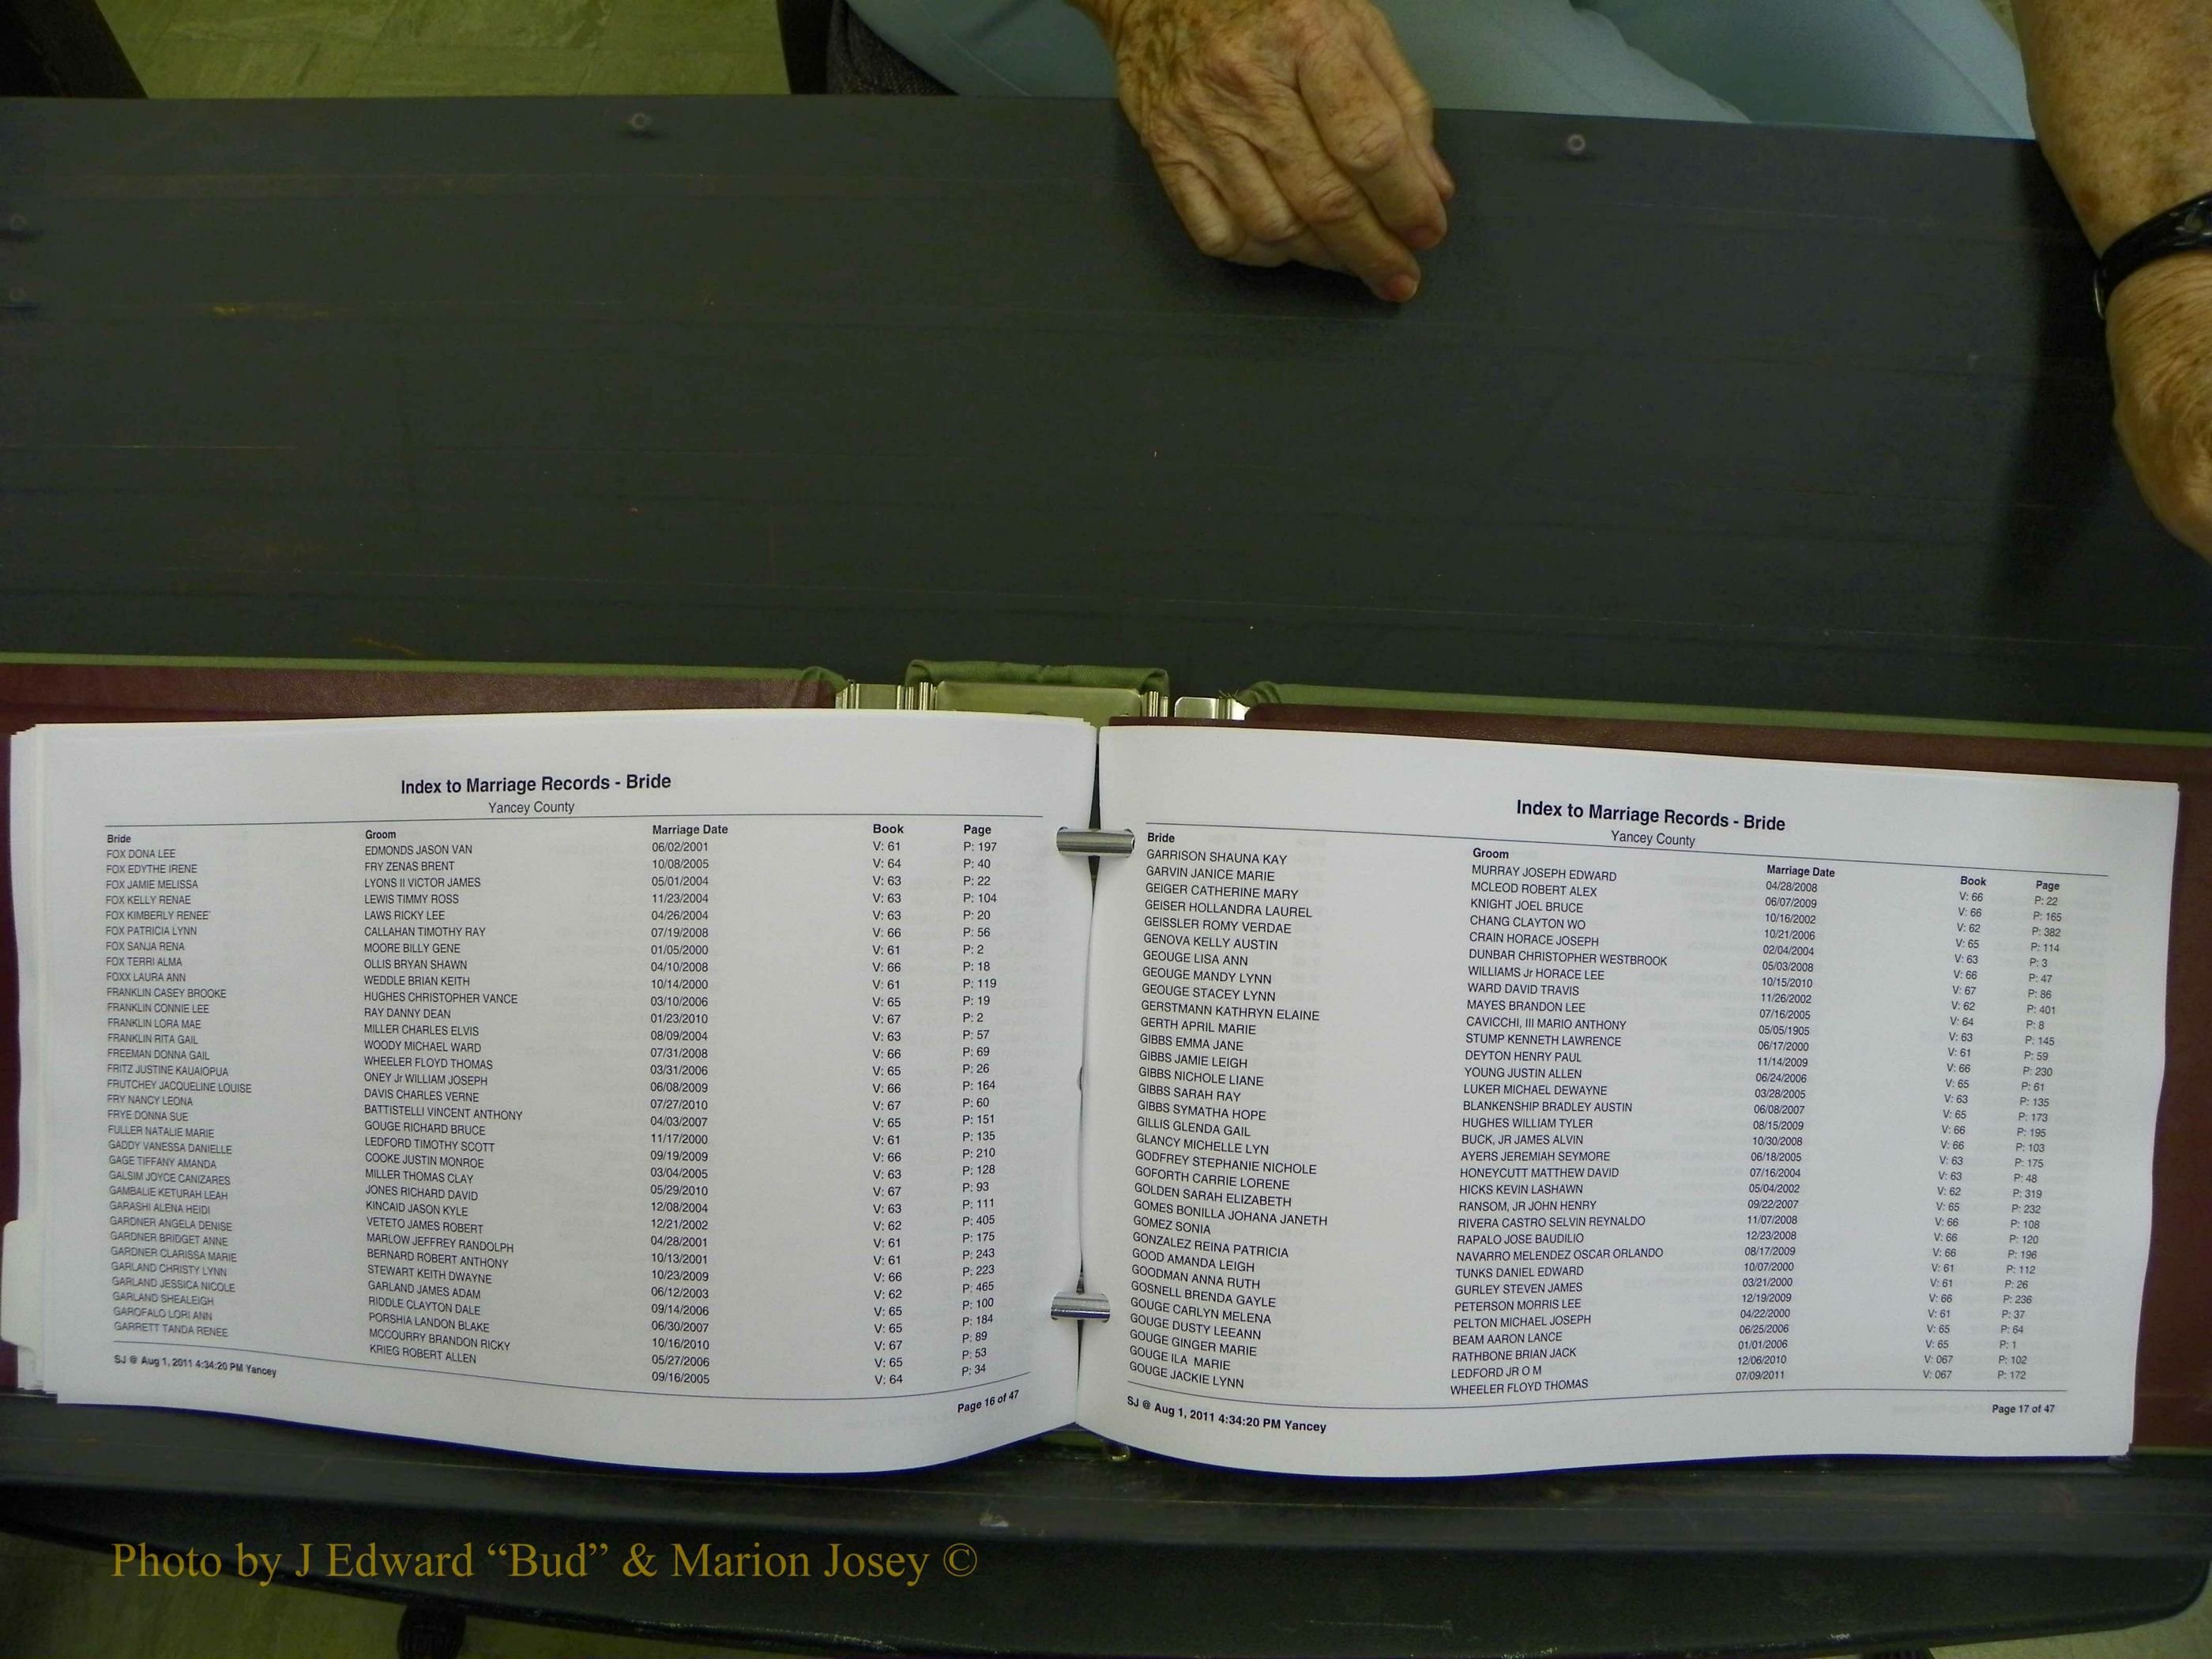 Index to Marriage Records - Bride
Yancey County
Bride Groom Marriage Date Book Page
FOX DONA LEE EDMONDS JASON VAN 06/02/2001 V: 61 P: 197
FOX EDYTHE IRENE FRY ZENAS BRENT 10/08/2005 V: 64 P: 40
FOX JAMIE MELISSA LYONS II VICTOR JAMES 05/01/2004 V: 63 P: 22
FOX KELLY RENAE LEWIS TIMMY ROSS 11/23/2004 V: 63 P: 104
FOX KIMBERLY RENEE LAWS RICKY LEE 04/26/2004 V: 63 P: 20
FOX PATRICIA LYNN CALLAHAN TIMOTHY RAY 07/19/2008 V: 66 P: 56
FOX SANJA RENA MOORE BILLY GENE 01/05/2000 V: 61 P: 2
FOX TERRI ALMA OLLIS BRYAN SHAWN 04/10/2008 V: 66 P: 18
FOXX LAURA ANN WEDDLE BRIAN KEITH 10/14/2000 V: 61 P: 119
FRANKLIN CASEY BROOKE HUGHES CHRISTOPHER VANCE 03/10/2006 V: 65 P: 19
FRANKLIN CONNIE LEE RAY DANNY DEAN 01/23/2010 V: 67 P: 2
FRANKLIN LORA MAE MILLER CHARLES ELVIS 08/09/2004 V: 63 P: 57
FRANKLIN RITA GAIL WOODY MICHAEL WARD 07/31/2008 V: 66 P: 69
FREEMAN DONNA GAIL WHEELER FLOYD THOMAS 03/31/2006 V: 65 P: 26
FRITZ JUSTINE KAUAIOPUA ONEY Jr WILLIAM JOSEPH 06/08/2009 V: 66 P: 164
FRUTCHEY JACQUELINE LOUISE DAVIS CHARLES VERNE 07/27/2010 V: 67 P: 60
FRY NANCY LEONA BATTISTELLI VINCENT ANTHONY 04/03/2007 V: 65 P: 151
FRYE DONNA SUE GOUGE RICHARD BRUCE 11/17/2000 V: 61 P: 135
FULLER NATALIE MARIE LEDFORD TIMOTHY SCOTT 09/19/2009 V: 66 P: 210
GADDY VANESSA DANIELLE COOKE JUSTIN MONROE 03/04/2005 V: 63 P: 128
GAGE TIFFANY AMANDA MILLER THOMAS CLAY 05/29/2010 V: 67 P: 93
GALSIM JOYCE CANIZARES JONES RICHARD DAVID 12/08/2004 V: 63 P: 111
GAMBALIE KETURAH LEAH KINCAID JASON KYLE 12/21/2002 V: 62 P: 405
GARASHI ALENA HEIDI VETETO JAMES ROBERT 04/28/2001 V: 61 P: 175
GARDNER ANGELA DENISE MARLOW JEFFREY RANDOLPH 10/13/2001 V: 61 P: 243
GARDNER BRIDGET ANNE BERNARD ROBERT ANTHONY 10/23/2009 V: 66 P: 223
GARDNER CLARISSA MARIE STEWART KEITH DWAYNE 06/12/2003 V: 62 P: 465
GARLAND CHRISTY LYNN GARLAND JAMES ADAM 09/14/2006 V: 65 P: 100
GARLAND JESSICA NICOLE RIDDLE CLAYTON DALE 06/30/2007 V: 65 P: 184
GARLAND SHEALEIGH PORSHIA LANDON BLAKE 10/16/2010 V: 67 P: 89
GAROFALO LORI ANN MCCOURRY BRANDON RICKY 05/27/2006 V: 65 P: 53
GARRETT TANDA RENEE KRIEG ROBERT ALLEN 09/16/2005 V: 64 P: 34
SJ @ Aug 1, 2011 4:34:20 PM Yancey Page 16 of 47
Index to Marriage Records - Bride
Yancey County
Bride Groom Marriage Date Book Page
GARRISON SHAUNA KAY MURRAY JOSEPH EDWARD 04/28/2008 V: 66 P: 22
GARVIN JANICE MARIE MCLEOD ROBERT ALEX 06/07/2009 V: 66 P: 165
GEIGER CATHERINE MARY KNIGHT JOEL BRUCE 10/16/2002 V: 62 P: 382
GEISER HOLLANDRA LAUREL CHANG CLAYTON WO 10/21/2006 V: 65 P: 114
GEISSLER ROMY VERDAE CRAIN HORACE JOSEPH 02/04/2004 V: 63 P: 3
GENOVA KELLY AUSTIN DUNBAR CHRISTOPHER WESTBROOK 05/03/2008 V: 66 P: 47
GEOUGE LISA ANN WILLIAMS Jr HORACE LEE 10/15/2010 V: 67 P: 86
GEOUGE MANDY LYNN WARD DAVID TRAVIS 11/26/2002 V: 62 P: 401
GEOUGE STACEY LYNN MAYES BRANDON LEE 07/16/2005 V: 64 P: 8
GERSTMANN KATHRYN ELAINE CAVICCHI, III MARIO ANTHONY 05/05/1905 V: 63 P: 145
GERTH APRIL MARIE STUMP KENNETH LAWRENCE 06/17/2000 V: 61 P: 59
GIBBS EMMA JANE DEYTON HENRY PAUL 11/14/2009 V: 66 P: 230
GIBBS JAMIE LEIGH YOUNG JUSTIN ALLEN 06/24/2006 V: 65 P: 61
GIBBS NICHOLE LIANE LUKER MICHAEL DEWAYNE 03/28/2005 V: 63 P: 135
GIBBS SARAH RAY BLANKENSHIP BRADLEY AUSTIN 06/08/2007 V: 65 P: 173
GIBBS SYMATHA HOPE HUGHES WILLIAM TYLER 08/15/2009 V: 66 P: 195
GILLIS GLENDA GAIL BUCK, JR JAMES ALVIN 10/30/2008 V: 66 P: 103
GLANCY MICHELLE LYN AYERS JEREMIAH SEYMORE 06/18/2005 V: 63 P: 175
GODFREY STEPHANIE NICHOLE HONEYCUTT MATTHEW DAVID 07/16/2004 V: 63 P: 48
GOFORTH CARRIE LORENE HICKS KEVIN LASHAWN 05/04/2002 V: 62 P: 319
GOLDEN SARAH ELIZABETH RANSOM, JR JOHN HENRY 09/22/2007 V: 65 P: 232
GOMES BONILLA JOHANA JANETH RIVERA CASTRO SELVIN REYNALDO 11/07/2008 V: 66 P: 108
GOMEZ SONIA RAPALO JOSE BAUDILIO 12/23/2008 V: 66 P: 120
GONZALEZ REINA PATRICIA NAVARRO MELENDEZ OSCAR ORLANDO 08/17/2009 V: 66 P: 196
GOOD AMANDA LEIGH TUNKS DANIEL EDWARD 10/07/2000 V: 61 P: 112
GOODMAN ANNA RUTH GURLEY STEVEN JAMES 03/21/2000 V: 61 P: 26
GOSNELL BRENDA GAYLE PETERSON MORRIS LEE 12/19/2009 V: 66 P: 236
GOUGE CARLYN MELENA PELTON MICHAEL JOSEPH 04/22/2000 V: 61 P: 37
GOUGE DUSTY LEEANN BEAM AARON LANCE 06/25/2006 V: 65 P: 64
GOUGE GINGER MARIE RATHBONE BRIAN JACK 01/01/2006 V: 65 P: 1
GOUGE ILA MARIE LEDFORD JR O M 12/06/2010 V: 067 P: 102
GOUGE JACKIE LYNN WHEELER FLOYD THOMAS 07/09/2011 V: 067 P: 172
SJ @ Aug 1, 2011 4:34:20 PM Yancey Page 17 of 47
Photo by J Edward “Bud” & Marion Josey ©